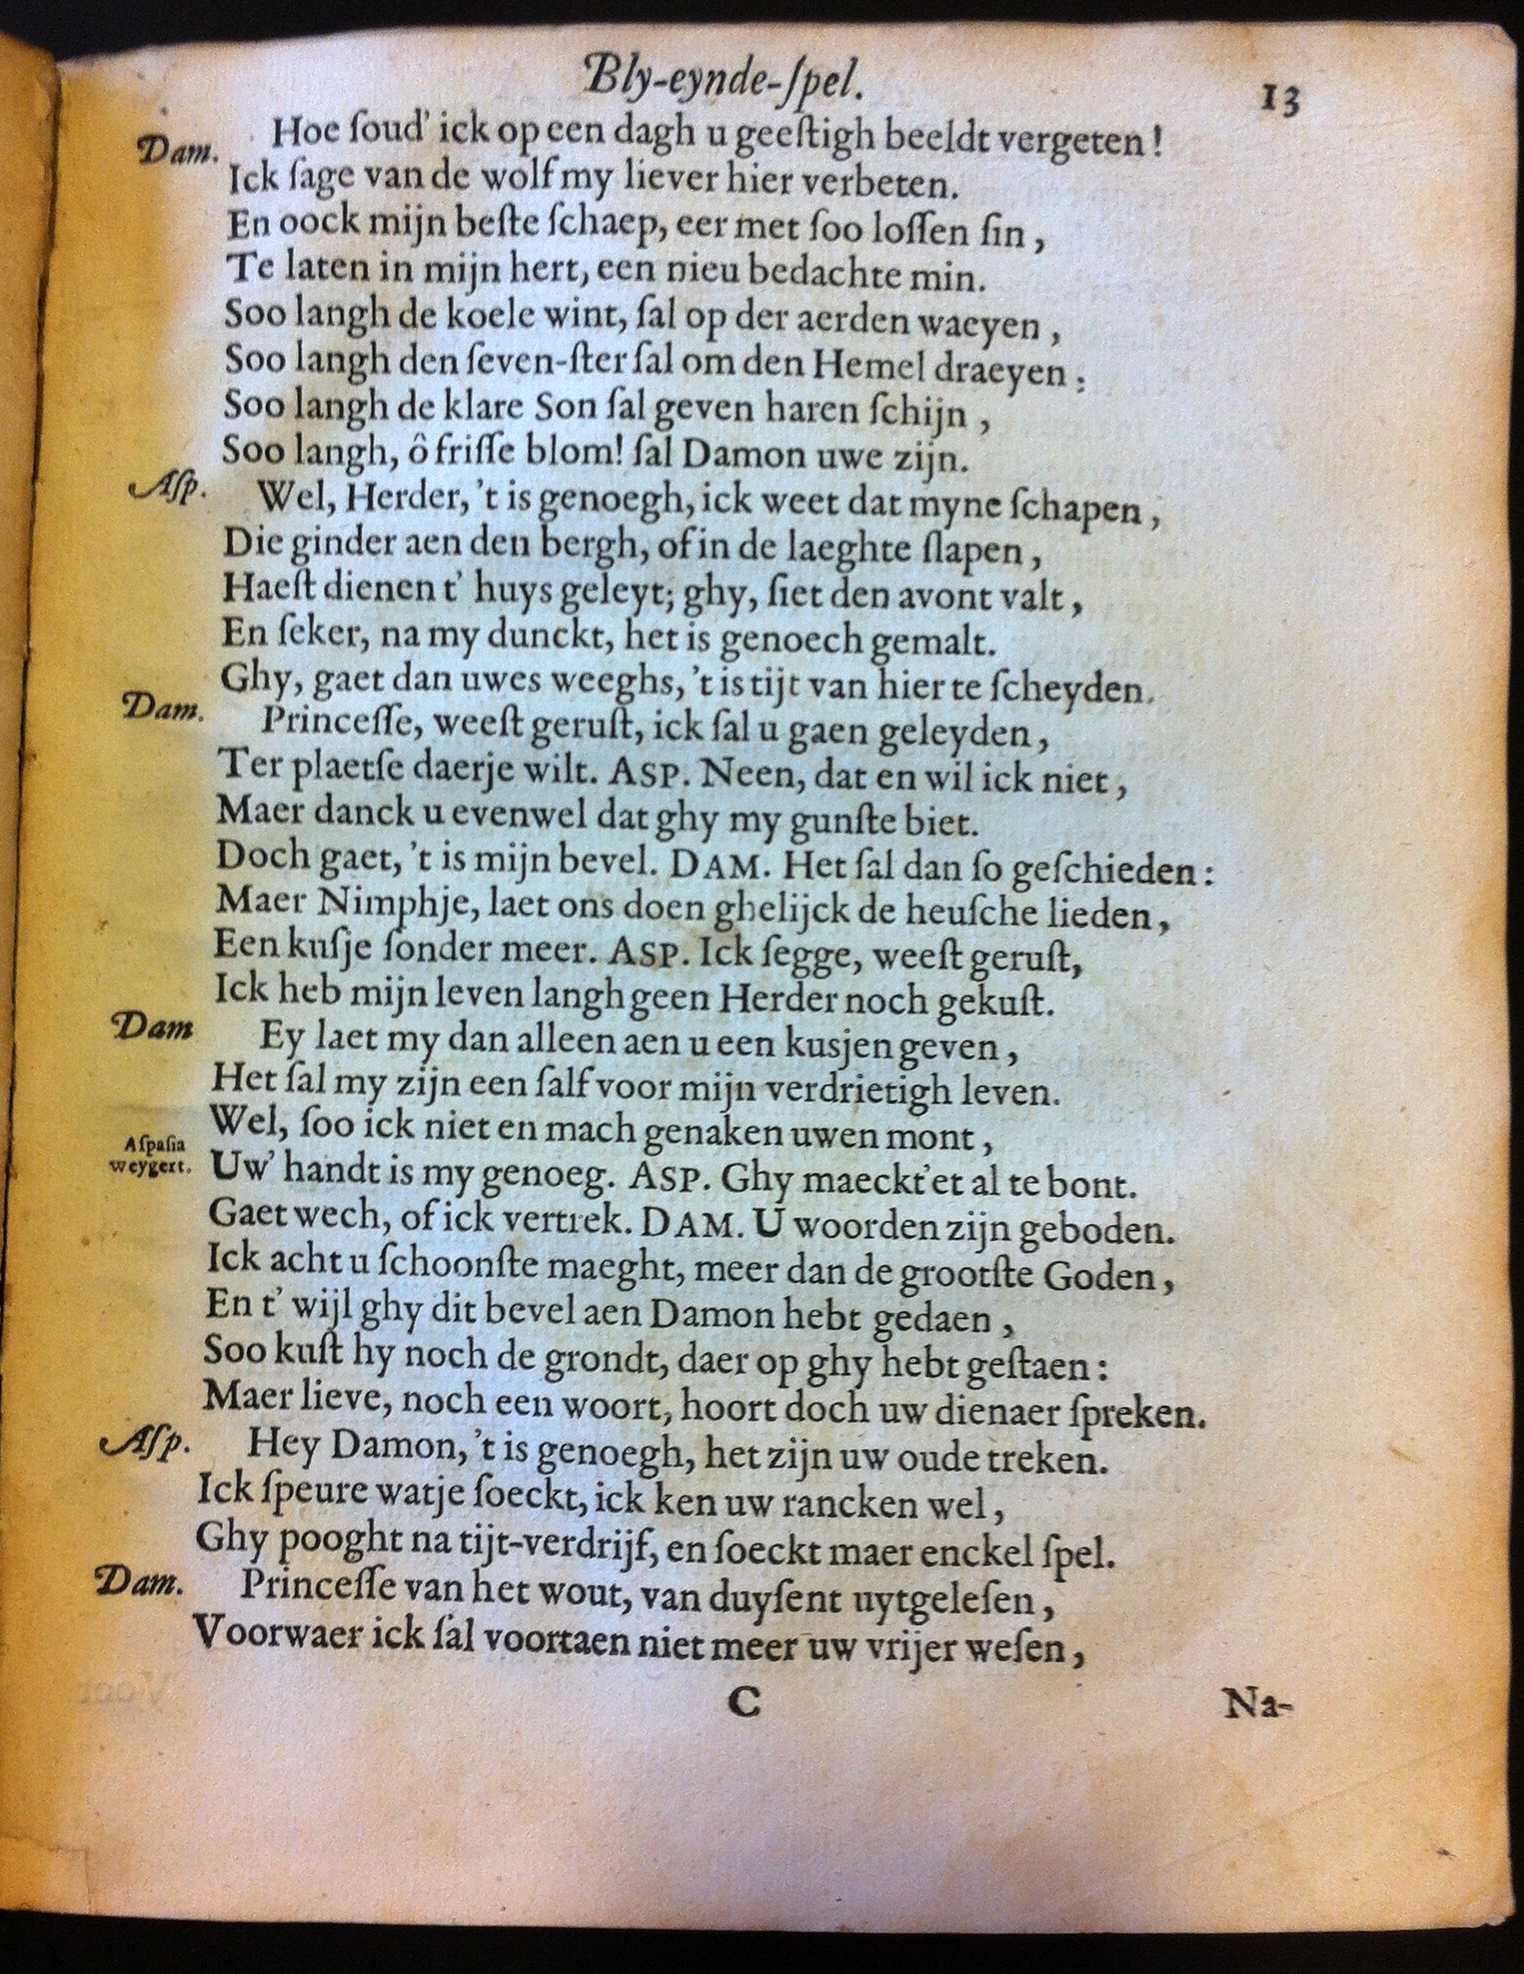 Bly-eynde-ſpel. 13
Dam. Hoe ſoud' ick op een dagh u geeſtigh beeldt vergeten!
Ick ſage van de wolf my liever hier verbeten.
En oock mijn beſte ſchaep, eer met ſoo loſſen ſin,
Te laten in mijn hert, een nieu bedachte min.
Soo langh de koele wint, ſal op der aerden waeyen,
Soo langh den ſeven-ſter ſal om den Hemel draeyen:
Soo langh de klare Son ſal geven haren ſchijn,
Soo langh, ô friſſe blom! ſal Damon uwe zijn.
Aſp. Wel, Herder, 't is genoegh, ick weet dat myne ſchapen,
Die ginder aen den bergh, of in de laeghte ſlapen,
Haeſt dienen t' huys geleyt; ghy, ſiet den avont valt,
En ſeker, na my dunckt, het is genoech gemalt.
Ghy, gaet dan uwes weeghs, 't is tijt van hier te ſcheyden.
Dam. Princeſſe, weeſt geruſt, ick ſal u gaen geleyden,
Ter plaetſe daerje wilt. ASP. Neen, dat en wil ick niet,
Maer danck u evenwel dat ghy my gunſte biet.
Doch gaet, 't is mijn bevel. DAM. Het ſal dan ſo geſchieden:
Maer Nimphje, laet ons doen ghelijck de heuſche lieden,
Een kuſje ſonder meer. ASP. Ick ſegge, weeſt geruſt,
Ick heb mijn leven langh geen Herder noch gekuſt.
Dam Ey laet my dan alleen aen u een kusjen geven,
Het ſal my zijn een ſalf voor mijn verdrietigh leven.
Wel, ſoo ick niet en mach genaken uwen mont,
Aſpaſia weygert. Uw' handt is my genoeg. ASP. Ghy maeckt'et al te bont.
Gaet wech, of ick vertrek. DAM. U woorden zijn geboden.
Ick acht u ſchoonſte maeght, meer dan de grootſte Goden,
En t' wijl ghy dit bevel aen Damon hebt gedaen,
Soo kuſt hy noch de grondt, daer op ghy hebt geſtaen:
Maer lieve, noch een woort, hoort doch uw dienaer ſpreken.
Aſp. Hey Damon, 't is genoegh, het zijn uw oude treken.
Ick ſpeure watje ſoeckt, ick ken uw rancken wel,
Ghy pooght na tijt-verdrijf, en ſoeckt maer enckel ſpel.
Dam. Princeſſe van het wout, van duyſent uytgeleſen,
Voorwaer ick ſal voortaen niet meer uw vrijer weſen,
C Na-